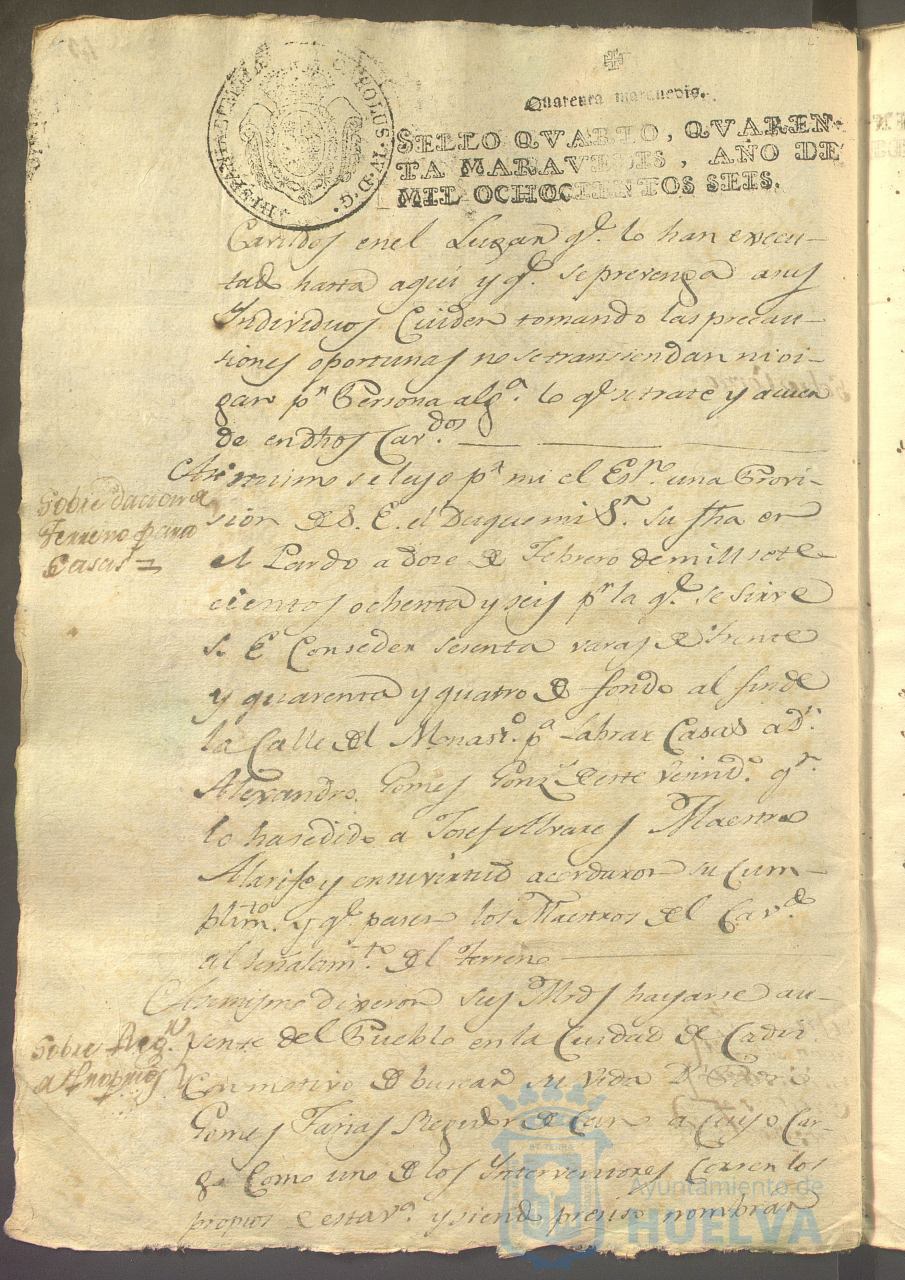 CAROLUS·IV·D·G·HISPANIAR
Quarenta maravedis.
SELLO QVARTO, QVAREN-
TA MARAVEDIS, AÑO DE
MIL OCHOCIENTOS SEIS.
Cavildos en el Lugar qe. lo han execu-
tado hasta aqui y qe. se prevenga a sus
Individuos Cuiden tomando las precau-
siones oportunas no se transiendan ni oi-
gan pr. Persona alga. lo qe. se trate y acuer
de en dhos Cavdos.
Asi mismo se leyo pr. mi el Esno. una Provi-
sion de S. E. el Duque mi Sr. su fha en
el Pardo a dose de Febrero de mill sete-
cientos ochenta y seis pr. la qe. se sirve
S. E. Conseder sesenta varas de frente
y quarenta y quatro de fondo al fin de
la Calle del Monasto. pa. Labrar Casas a Dn.
Alexandro Gomes Gonz. de este Vecindo. qn.
lo ha sedido a Josef Alvares Maestro
Alarife y en su virtud acordaron su Cum-
plimto. y qe. pasen los Maestros del Cavdo.
al señalamto. del terreno
Asimismo dixeron sus Mrds hayarse au-
sente del Pueblo en la Ciudad de Cadiz
Con motivo de buscar su vida Dn. Pedro
Gomes Farias Regidor de Cano a Cuyo Car-
go Como uno de los Interventores Corren los
propios de esta Va. y siendo presiso nombrar
Sobre dacion de
Terreno para
Casas
Sobre Regor.
a los propios
Ayuntamiento de
HUELVA